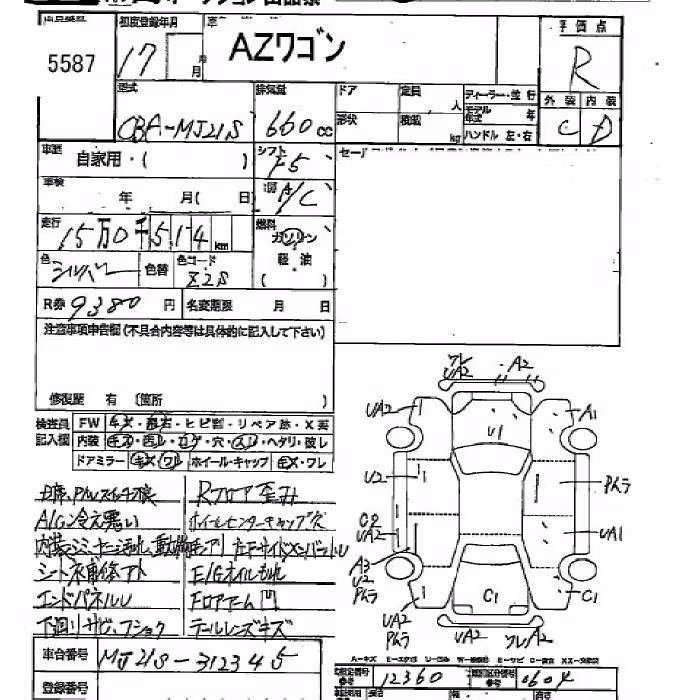 出品番号 初度登録年月 車名 評価点
5587 17 月 月 AZワゴン R
型式 排気量 ドア 定員 ディーラー・並行 外装 内装
人 モデル年式 年
CBA-MJ21S 660cc 形状 積載 kg ハンドル 左・右 C D
車歴 自家用・( ) シフト F5 セー
車検 年 月( 日) A/C
走行 15万0千514km 燃料 ガソリン
色 シルバー 色替 色コード Z2S 軽油
( )
R券 9380円 名変期限 月 日
注意事項申告欄(不具合内容等は具体的に記入して下さい)
修復歴 有 (箇所 )
検査員 FW キズ・飛石・ヒビ割・リペア跡・X要
記入欄 内装 キズ・汚レ・コゲ・穴・スレ・ヘタリ・破レ
ドアミラー キズ/ワレ ホイール・キャップ キズ・ワレ
Rフロア歪み
A/C冷え悪い ホイールセンターキャップ欠
シート補修アト E/Gオイルもれ
エンドパネルU フロアアーム凹
下廻りサビ、フショク テールレンズキズ
車台番号 MJ21S-312345
登録番号
ワレ
UA2 A2
UA2 A1
U1
U2 Pムラ
UA2 UA1
A3
U2
Pムラ
C1 C1
UA2
Pムラ UA2 ワレA2
A-キズ
12360 0604